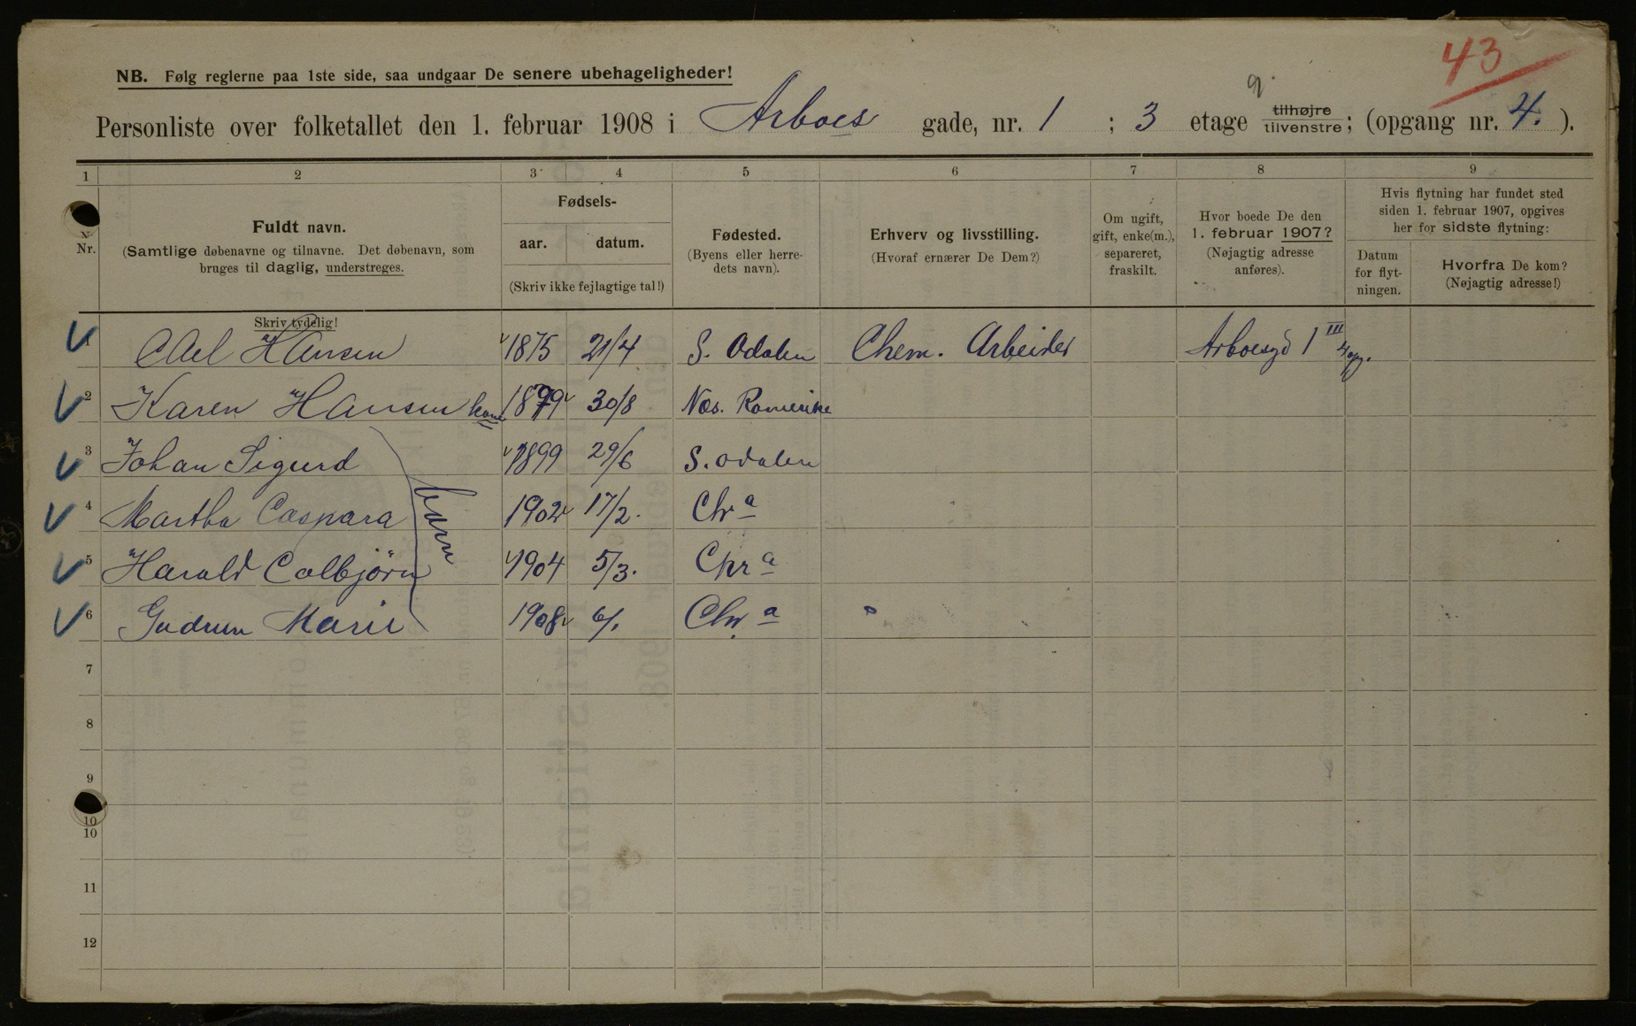 43
NB. Følg reglerne paa 1ste side, saa undgaar De senere ubehageligheder!
Personliste over folketallet den 1. februar 1908 i Arboes gade, nr. 1 ; 3 etage tilhøjre tilvenstre; (opgang nr. 4. ).
1 2 3 4 5 6 7 8 9
Nr.
Fuldt navn.
(Samtlige døbenavne og tilnavne. Det døbenavn, som
bruges til daglig, understreges.
Fødsels-
aar. datum.
(Skriv ikke fejlagtige tal!)
Fødested.
(Byens eller herre-
dets navn).
Erhverv og livsstilling.
(Hvoraf ernærer De Dem?)
Om ugift,
gift, enke(m.),
separeret,
fraskilt.
Hvor boede De den
1. februar 1907?
(Nøjagtig adresse
anføres).
Hvis flytning har fundet sted
siden 1. februar 1907, opgives
her for sidste flytning:
Datum
for flyt-
ningen.
Hvorfra De kom?
(Nøjagtig adresse!)
Skriv tydelig!
Hansen 1875 21/4 S. Odalen Chem. Arbeider Arboesgd 1 III 4 opg.
2 Karen Hansen kone 30/8 Nes. Romerike
3 Johan Sigurd 1899 29/6 S. Odalen
4 Martha Caspara 1902 17/2. Chr a
børn
5 Harald Colbjørn 1904 5/3. Chr a
6 Gudrun Marie 1908 6/1 Chr a
7
8
9
10
10
11
12